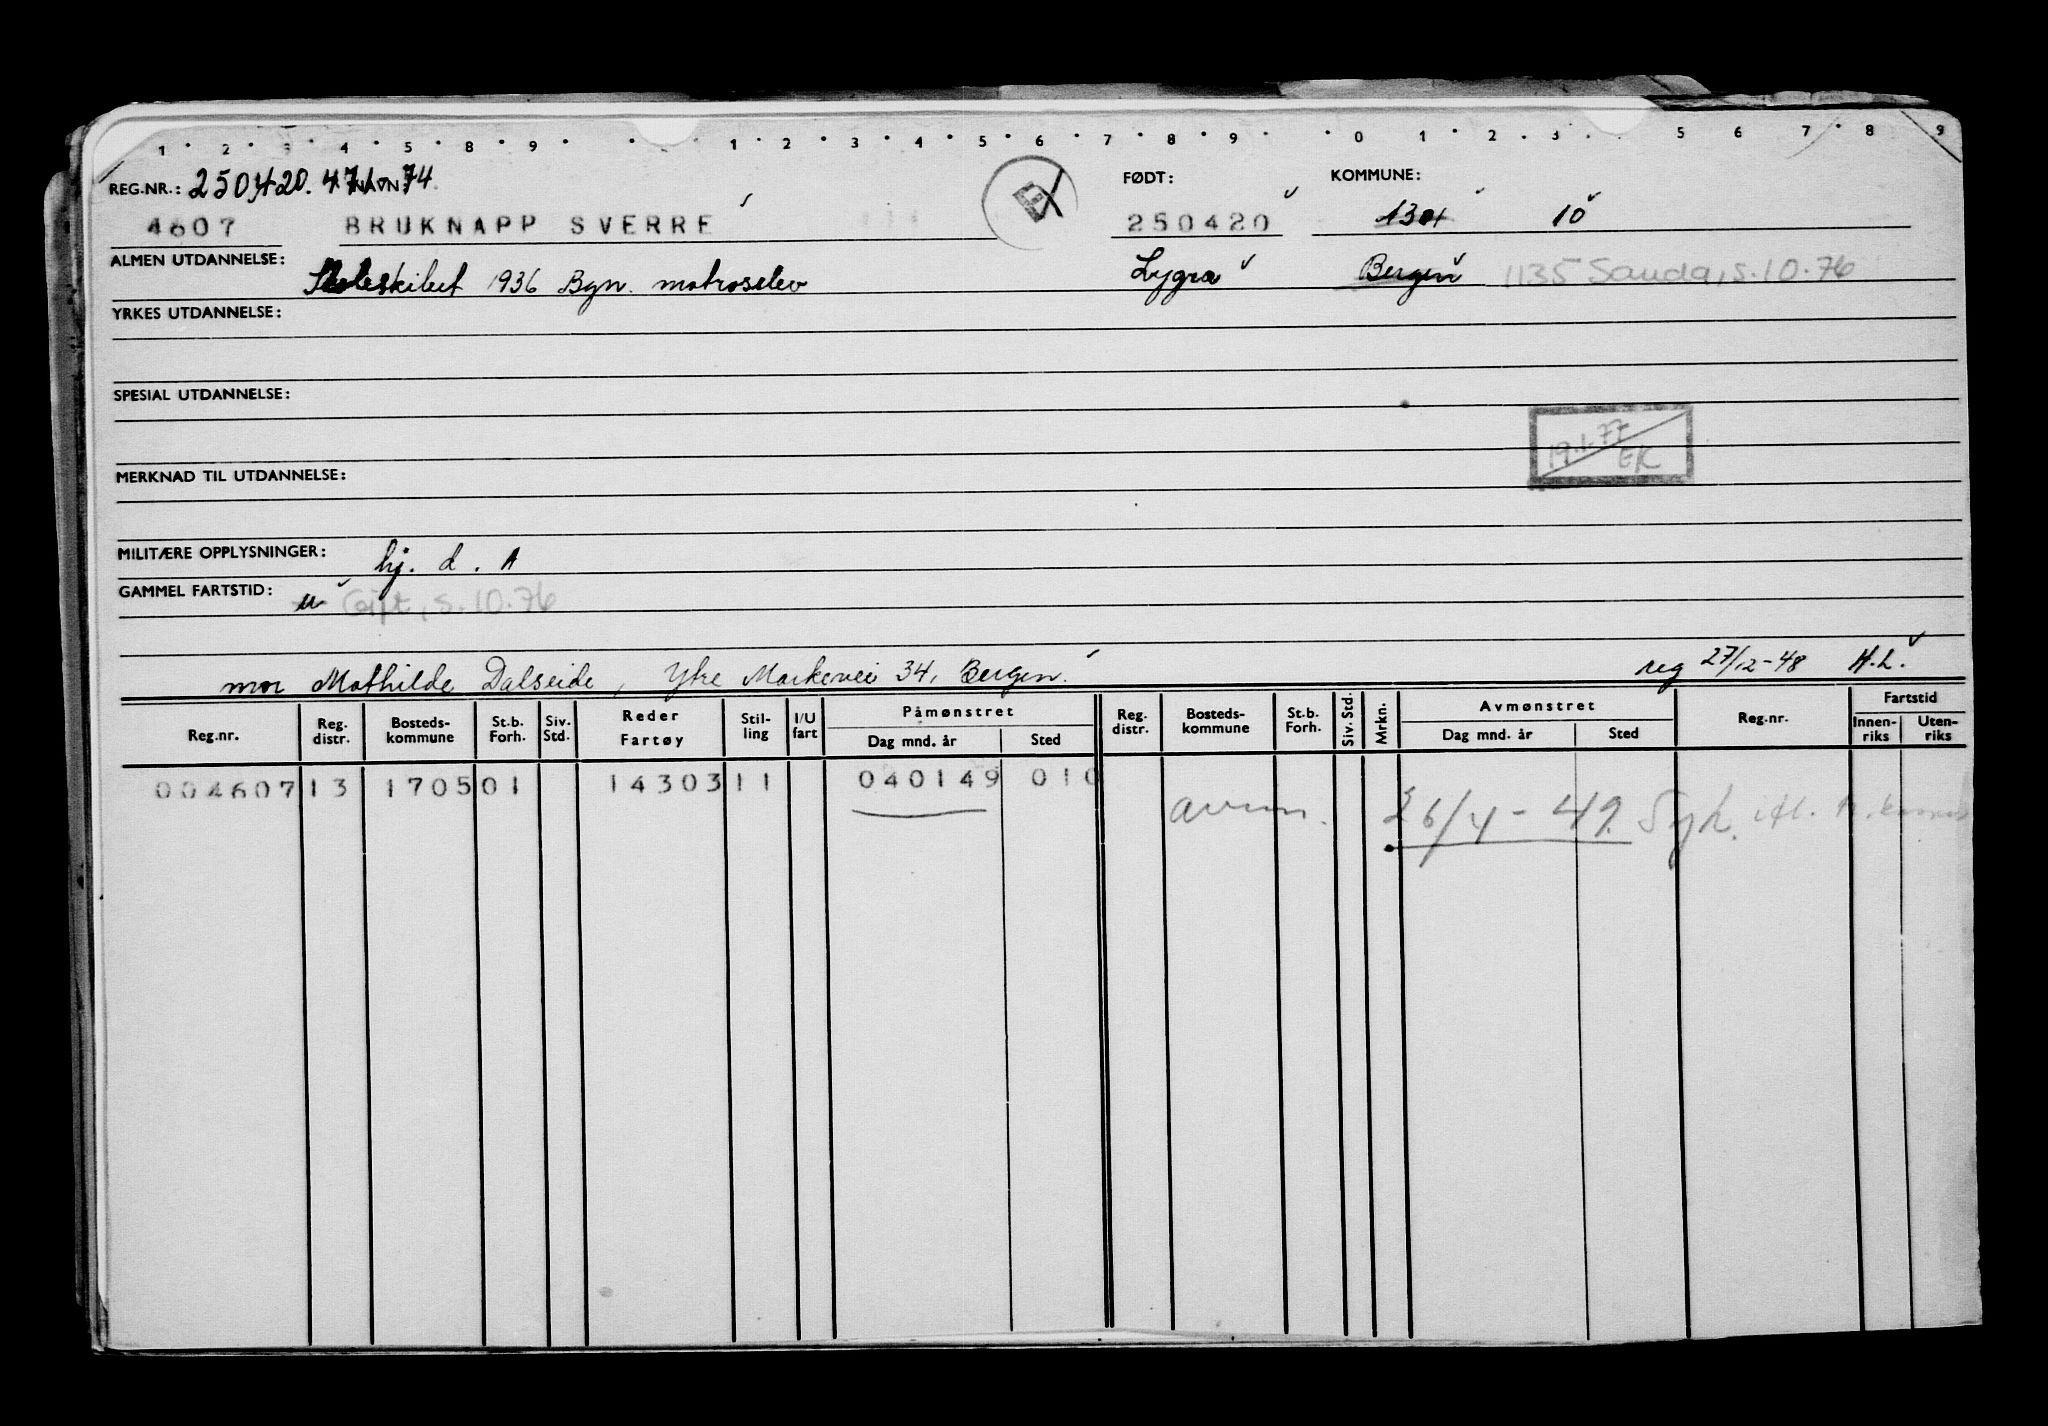 1 2 3 4 5 8 9 1 2 3 4 5 6 7 8 9 0 1 2 3 5 6 7 8 9
REG.NR.: 250420. 74 FØDT: KOMMUNE:
4607 BRUKNAPP SVERRE 250420 1301 10
ALMEN UTDANNELSE: 1936 Bgn. matroselev Lygra Bergen 1135 Sauda, s.10.76
YRKES UTDANNELSE:
SPESIAL UTDANNELSE:
19.1.77
EK
MERKNAD TIL UTDANNELSE:
MILITÆRE OPPLYSNINGER: hj. d. A
GAMMEL FARTSTID: u Gift, s.10.76
mor Mathilde Dalseide, Ytre Markevei 34, Bergen. reg 27/12-48 H.L.
Reg.nr. Reg. distr. Bosteds-kommune St.b. Forh. Siv. Std. Reder Fartøy Stil-ling I/U fart Påmønstret Dag mnd. år Sted Reg. distr. Bosteds-kommune St.b. Forh. Siv. Std. Mrkn. Avmønstret Dag mnd. år Sted Reg.nr. Fartstid Innen-riks Uten-riks
004607 13 1705 01 14303 11 040149 010
avm. 26/4-49. Syk.